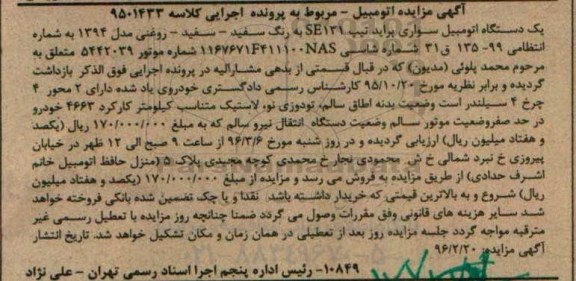 آگهی مزایده اتومبیل – مربوط به پرونده اجرایی کلاسه ۹۵۰۱۴۳۳
یک دستگاه اتومبیل سواری پراید تیپ SE۱۳۱ به رنگ سفید – سفید – روغنی مدل ۱۳۹۴ به شماره
انتظامی ۹۹- ۱۳۵ ق۳۱ شماره شاسی NAS۴۱۱۱۰۰F۱۱۶۷۶۷۱ شماره موتور ۵۴۴۲۰۳۹ متعلق به
مرحوم محمد پلوئی (مدیون) که در قبال قسمتی از بدهی مشارالیه در پرونده اجرایی فوق الذکر بازداشت
گردیده و برابر نظریه مورخ ۹۵/۱۰/۲۰ کارشناس رسمی دادگستری خودروی یاد شده دارای ۲ محور ۴
چرخ ۴ سیلندر است وضعیت بدنه اطاق سالم، تودوزی نو، لاستیک متناسب کیلومتر کارکرد ۴۶۶۳ خودرو
در حد صفروضعیت موتور سالم وضعیت دستگاه انتقال نیرو سالم که به مبلغ ۱۷۰/۰۰۰/۰۰۰ ریال (یکصد
و هفتاد میلیون ریال) ارزیابی گردیده و در روز شنبه مورخ ۹۶/۳/۶ از ساعت ۹ صبح الی ۱۲ ظهر در خیابان
پیروزی خ نبرد شمالی خ ش محمودی نجار خ محمدی کوچه مجیدی پلاک ۵ (منزل حافظ اتومبیل خانم
اشرف حدادی) از طریق مزایده به فروش می رسد و مزایده از مبلغ ۱۷۰/۰۰۰/۰۰۰ (یکصد و هفتاد میلیون
ریال) شروع و به بالاترین قیمتی که خریدار داشته باشد نقدا و یا چک تضمین شده بانکی فروخته خواهد
شد سایر هزینه های قانونی وفق مقررات وصول می گردد ضمنا چنانچه روز مزایده با تعطیل رسمی غیر
مترقبه مواجه گردد جلسه مزایده روز بعد از تعطیلی در همان زمان و مکان تشکیل خواهد شد. تاریخ انتشار
آگهی مزایده: ۹۶/۲/۲۰
۱۰۸۴۹- رئیس اداره پنجم اجرا اسناد رسمی تهران – علی نژاد